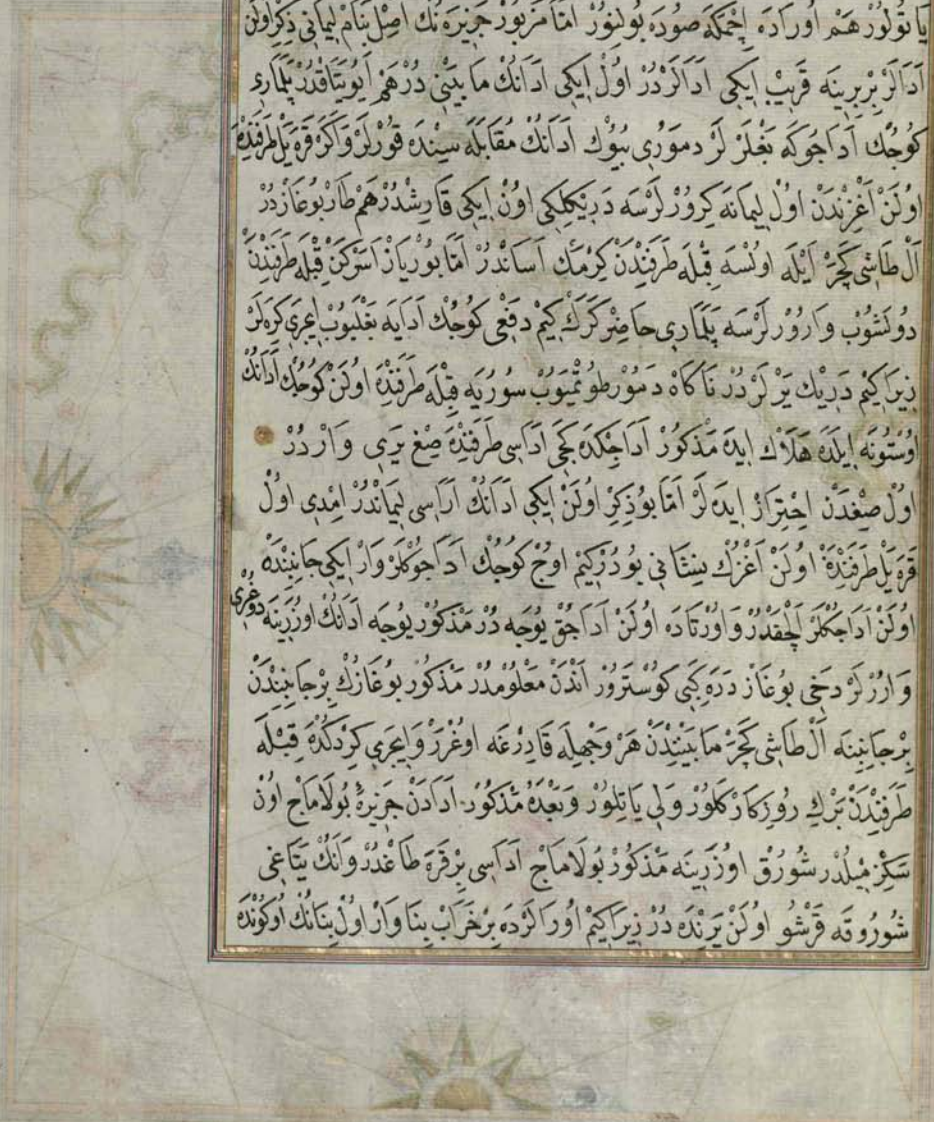 ياتولور هم اوراده اچمكه صوده بولنور امّا مزبور جزيره نك اصل بنام ليمانى ذكر اولن
ادالر بربرينه قريب ايكى ادالردر اول ايكى ادانك ما بينى در هم ايو يتاقدر پلمارى
كوچك اداجوكه بغلرلر دمورى بيوك ادانك مقابله سنده قورلر و اكر قره يل طرفنده
اولن اغزندن اول ليمانه كرورلرسه درينكلكى اون ايكى قارشدر هم طار بوغازدر
ال طاشى كچر ايله اولسه قبله طرفندن كرمك اساندر امّا بورياز اسركن قبله طرفندن
دولشوب وارورلرسه پلمارى حاضر كرك كيم دفعى كوچك ادايه بغليوب ايچرى كره لر
زيرا كيم درين يرلردر ناكاه دمور طوتميوب سوريه قبله طرفنده اولن كوچك ادانك
اوستونه ايلده هلاك ايده مذكور اداجكده كجى اداسى طرفنده صغ يرى واردر
اول صغدن احتراز ايده لر امّا بو ذكر اولن ايكى ادانك اراسى ليماندر امدى اول
قره يل طرفنده اولن اغزك نشانى بودركيم اوچ كوچك اداجوكلر وار ايكى جانبنده
اولن اداجكلر الچقدر و اورتاده اولن اداجق يوجه در مذكور يوجه ادانك اوزرينه دوغرى
واررلر دخى بوغاز دره كبى كوسترور اندن معلومدر مذكور بوغازك بر جانبندن
بر جانبنه ال طاشى كچر ما بينندن هر وجهله قادرغه اوغرر و ايچرى كردكده قبله
طرفندن برك روزكار كلور ولى ياتلور وبعده مذكور ادادن جزيرهٔ بولاماج اون
سكز ميلدر شورق اوزرينه مذكور بولاماج اداسى بر قره طاغدر و انك يتاغى
شوروقه قرشو اولن يرنده در زيرا كيم اورالرده بر خراب بنا وار اول بنانك اوكونده